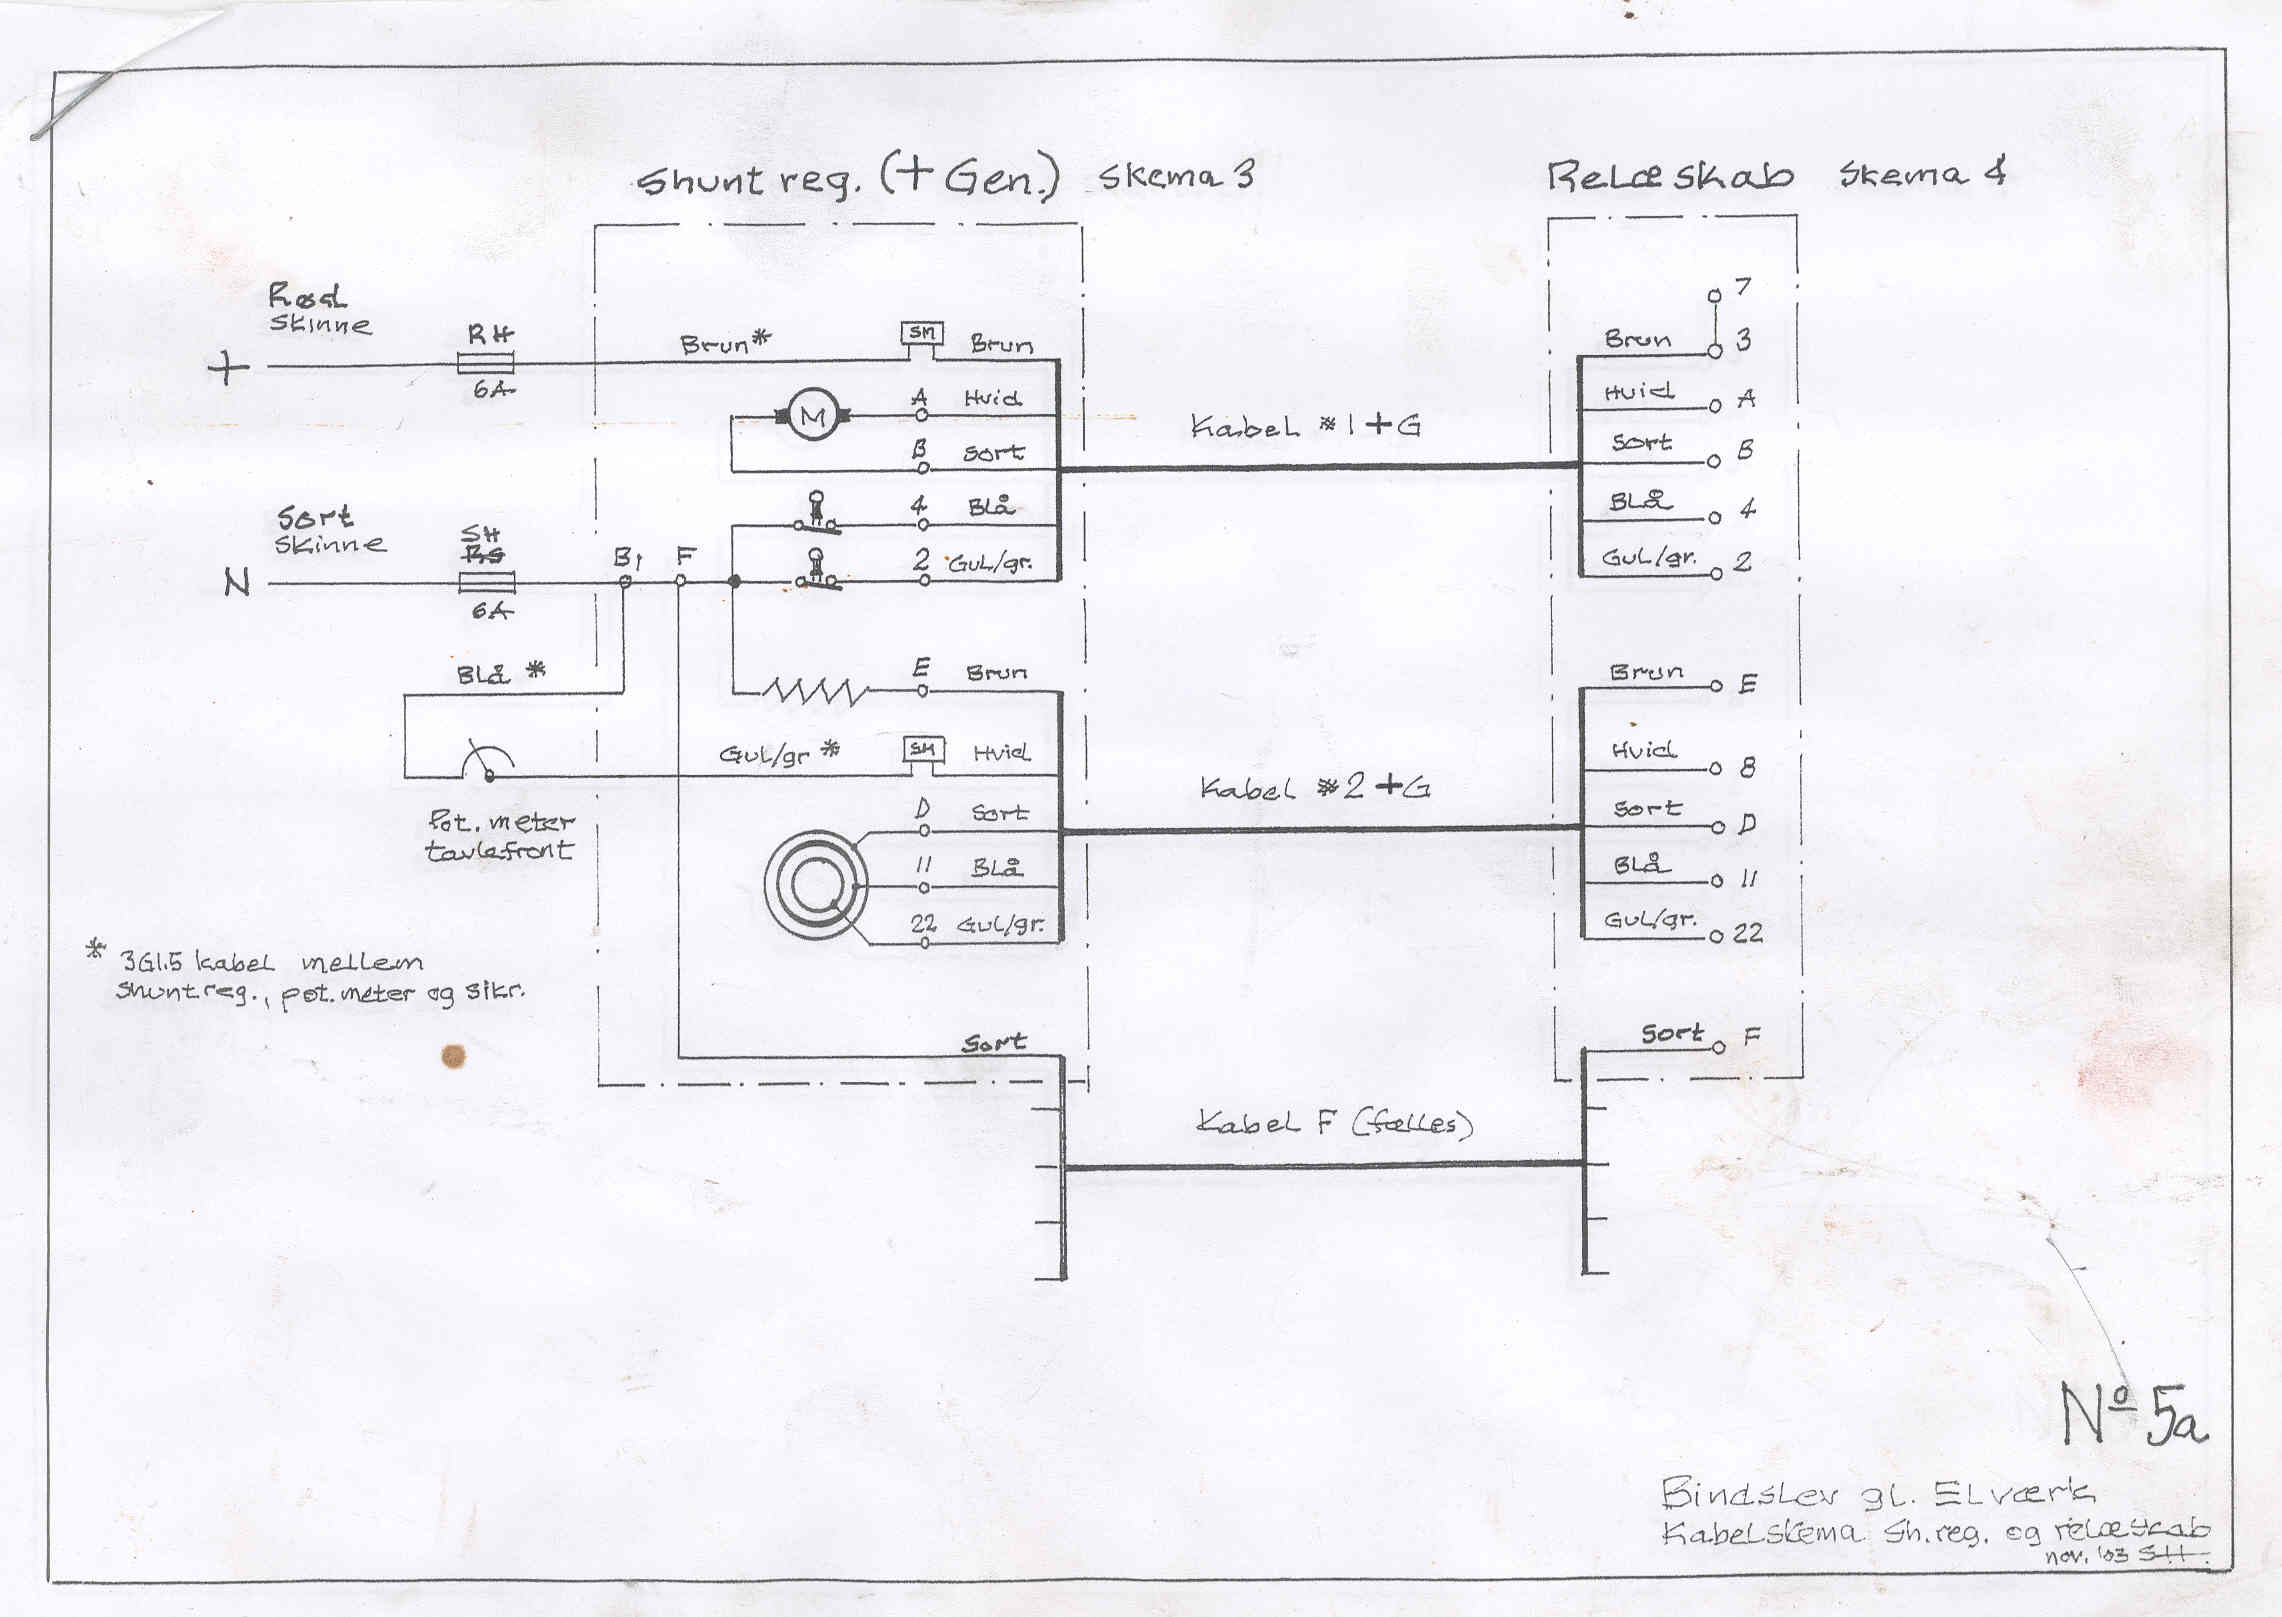 Shunt reg. (+ Gen.) Skema 3
Relæskab Skema 4
Rød
Skinne
+
RH
6A
Brun*
SM
Brun
M
A
Hvid
B
Sort
4
Blå
Sort
Skinne
N
SH
6A
B1
F
2
Gul/gr.
Kabel *1+G
7
Brun
3
Hvid
A
Sort
B
Blå
4
Gul/gr.
2
Blå *
E
Brun
Gul/gr *
SM
Hvid
Pot. meter
tavlefront
D
Sort
11
Blå
22
Gul/gr.
Kabel *2+G
Brun
E
Hvid
8
Sort
D
Blå
11
Gul/gr.
22
* 3G1.5 kabel mellem
shunt reg., pot. meter og sikr.
Sort
Sort
F
Kabel F (fælles)
Nº 5a
Bindslev gl. Elværk
Kabelskema Sh.reg. og relæskab
nov. '03 SH